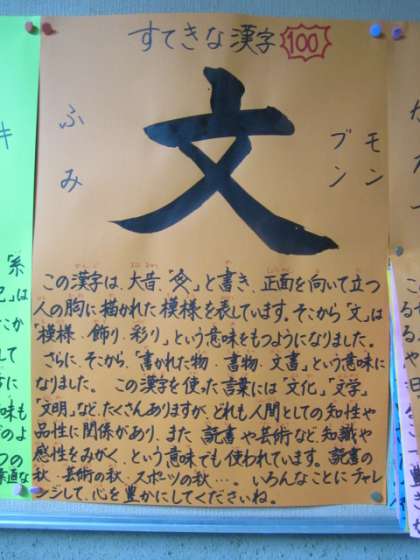 すてきな漢字 100
文
ふみ
モン
ブン
この漢字は、大昔「」と書き、正面を向いて立つ
人の胸に描かれた模様を表しています。そこから「文」は
「模様・飾り・彩り」という意味をもつようになりました。
さらに、そこから、「書かれた物・書物・文書」という意味に
なりました。この漢字を使った言葉には「文化」「文学」
「文明」など、たくさんありますが、どれも人間としての知性や
品性に関係があり、また、読書や芸術など、知識や
感性をみがく、という意味でも使われています。読書の
秋・芸術の秋・スポーツの秋…。いろんなことにチャレ
ンジして、心を豊かにしてくださいね。